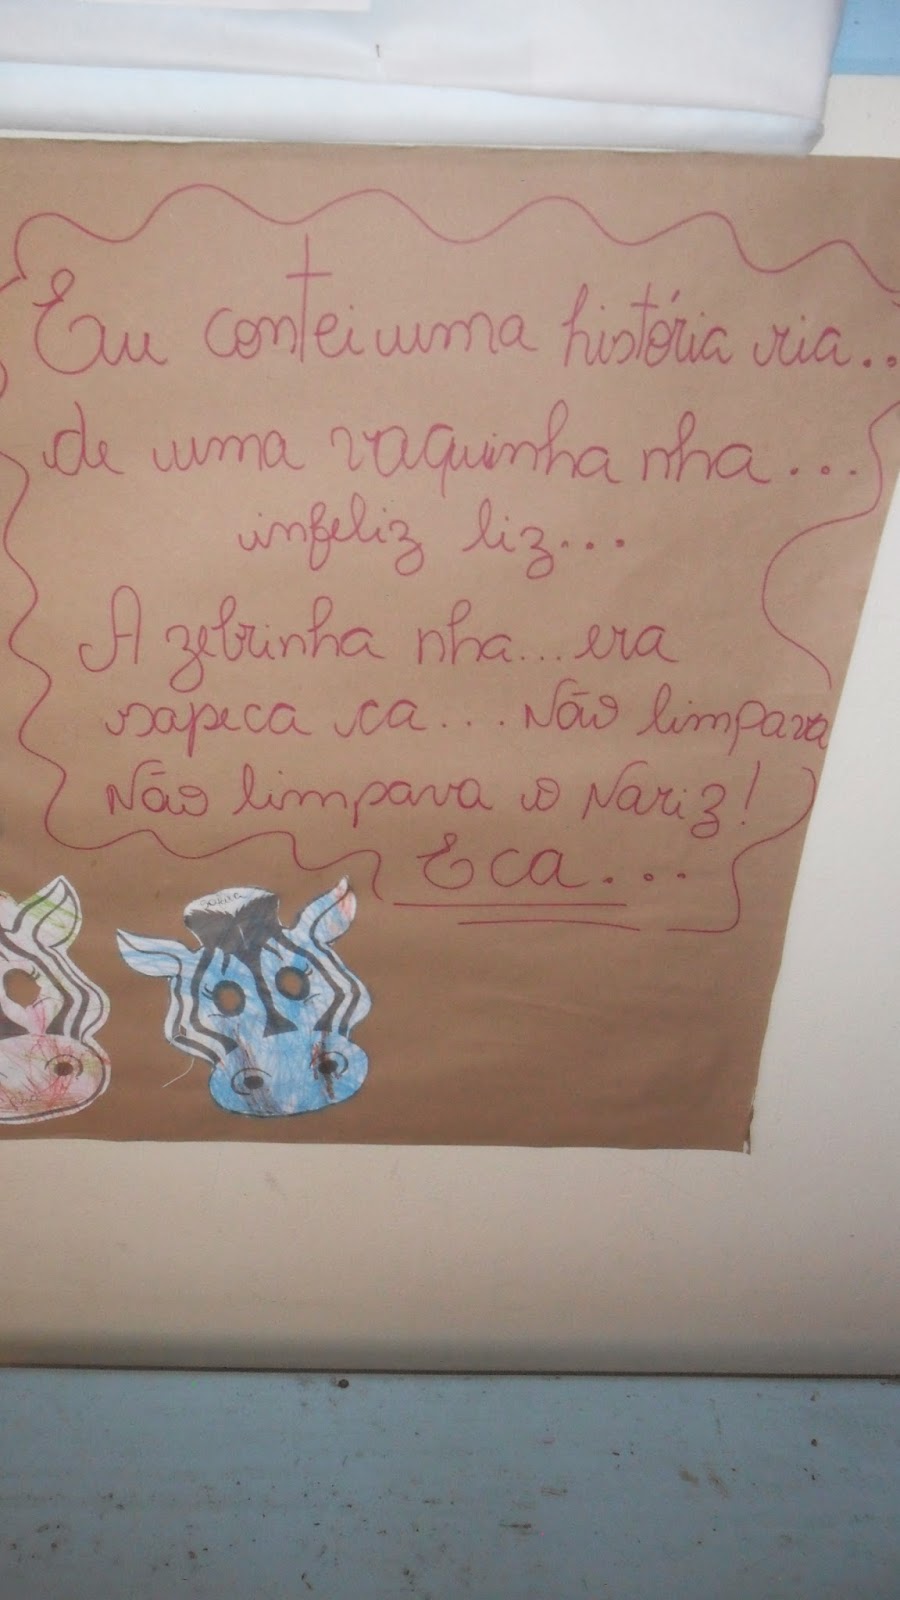 Eu contei uma história ria...
de uma vaquinha nha...
infeliz liz...
A zebrinha nha... era
sapeca ca... Não limpava
Não limpava o Nariz!
Eca...